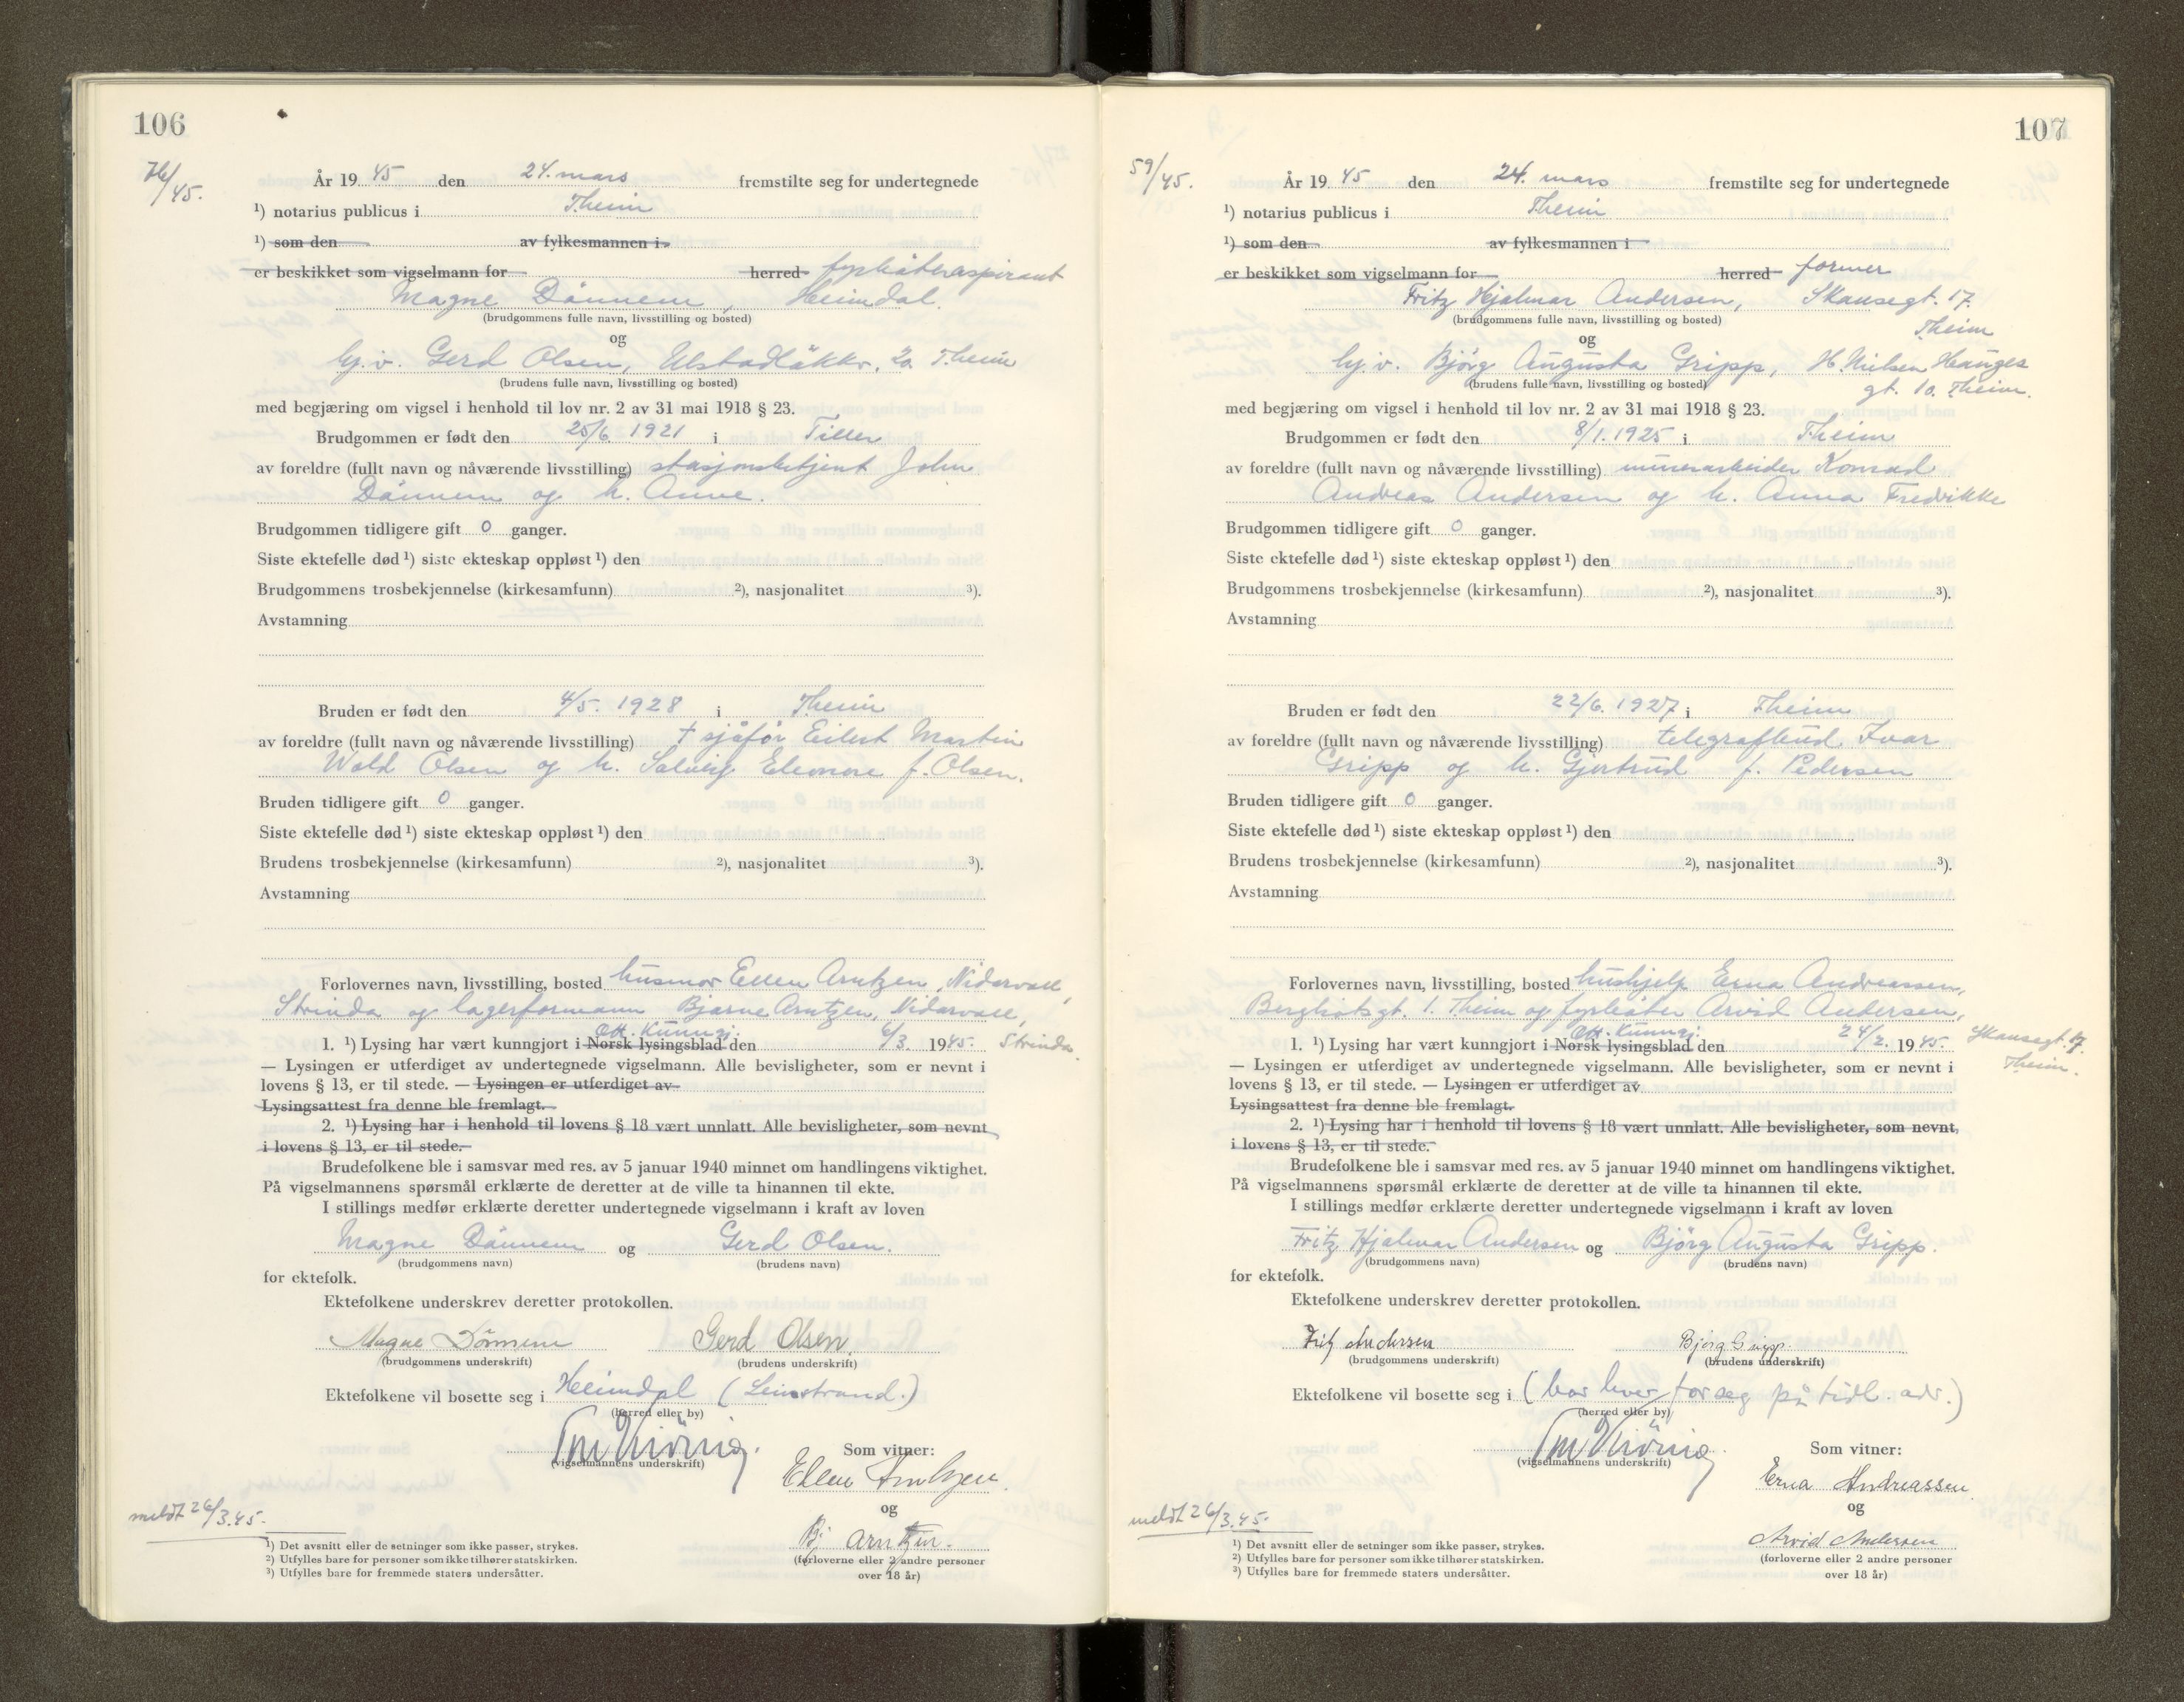 106
76/45.
År 19 45 den 24. mars fremstilte seg for undertegnede
1) notarius publicus i Theim
1) som den av fylkesmannen i
er beskikket som vigselmann for herred fyrbøteraspirant
Magne Dånnem, Heimdal.
(brudgommens fulle navn, livsstilling og bosted)
og
hj.v. Gerd Olsen, Ulstadløkkv. 2a Theim
(brudens fulle navn, livsstilling og bosted)
med begjæring om vigsel i henhold til lov nr. 2 av 31 mai 1918 § 23.
Brudgommen er født den 25/6 1921 i Tiller
av foreldre (fullt navn og nåværende livsstilling) stasjonsbetjent John
Dånnem og h. Anne.
Brudgommen tidligere gift 0 ganger.
Siste ektefelle død 1) siste ekteskap oppløst 1) den
Brudgommens trosbekjennelse (kirkesamfunn) 2), nasjonalitet 3).
Avstamning
Bruden er født den 4/5. 1928 i Theim
av foreldre (fullt navn og nåværende livsstilling) † sjåfør Eilert Martin
Wold Olsen og h. Solveig Eleonore f. Olsen.
Bruden tidligere gift 0 ganger.
Siste ektefelle død 1) siste ekteskap oppløst 1) den
Brudens trosbekjennelse (kirkesamfunn) 2), nasjonalitet 3).
Avstamning
Forlovernes navn, livsstilling, bosted husmor Ellen Arntzen, Nidarvoll,
Strinda og lagerformann Bjarne Arntzen, Nidarvoll,
Off. Kunngj.
1. 1) Lysing har vært kunngjort i Norsk lysingsblad den 6/3. 1945. Strinda.
— Lysingen er utferdiget av undertegnede vigselmann. Alle bevisligheter, som er nevnt i
lovens § 13, er til stede. — Lysingen er utferdiget av
Lysingsattest fra denne ble fremlagt.
2. 1) Lysing har i henhold til lovens § 18 vært unnlatt. Alle bevisligheter, som nevnt
i lovens § 13, er til stede.
Brudefolkene ble i samsvar med res. av 5 januar 1940 minnet om handlingens viktighet.
På vigselmannens spørsmål erklærte de deretter at de ville ta hinannen til ekte.
I stillings medfør erklærte deretter undertegnede vigselmann i kraft av loven
Magne Dånnem og Gerd Olsen.
(brudgommens navn) (brudens navn)
for ektefolk.
Ektefolkene underskrev deretter protokollen.
Magne Dönnem Gerd Olsen.
(brudgommens underskrift) (brudens underskrift)
Ektefolkene vil bosette seg i Heimdal (Leinstrand.)
(herred eller by)
(vigselmannens underskrift) Som vitner:
Ellen Arntzen
og
meldt 26/3.45.
Bj Arntzen.
(forloverne eller 2 andre personer
over 18 år)
1) Det avsnitt eller de setninger som ikke passer, strykes.
2) Utfylles bare for personer som ikke tilhører statskirken.
3) Utfylles bare for fremmede staters undersåtter.
107
59/45.
År 19 45 den 24. mars fremstilte seg for undertegnede
1) notarius publicus i Theim
1) som den av fylkesmannen i
er beskikket som vigselmann for herred former
Fritz Hjalmar Andersen, Skansegt. 17.
(brudgommens fulle navn, livsstilling og bosted) Theim
og
hj.v. Bjørg Augusta Gripp, H. Nielsen Hauges
(brudens fulle navn, livsstilling og bosted) gt. 10. Theim.
med begjæring om vigsel i henhold til lov nr. 2 av 31 mai 1918 § 23.
Brudgommen er født den 8/1. 1925 i Theim
av foreldre (fullt navn og nåværende livsstilling) minearbeider Konrad
Andreas Andersen og h. Anna Fredrikke
Brudgommen tidligere gift 0 ganger.
Siste ektefelle død 1) siste ekteskap oppløst 1) den
Brudgommens trosbekjennelse (kirkesamfunn) 2), nasjonalitet 3).
Avstamning
Bruden er født den 22/6. 1927 i Theim
av foreldre (fullt navn og nåværende livsstilling) telegrafbud Ivar
Gripp og h. Gjertrud f. Pedersen
Bruden tidligere gift 0 ganger.
Siste ektefelle død 1) siste ekteskap oppløst 1) den
Brudens trosbekjennelse (kirkesamfunn) 2), nasjonalitet 3).
Avstamning
Forlovernes navn, livsstilling, bosted hushjelp Erna Andreassen,
Bergliotsgt. 1. Theim og fyrbøter Arvid Andersen,
Off. Kunngj.
1. 1) Lysing har vært kunngjort i Norsk lysingsblad den 24/2. 1945. Skansegt. 17.
Theim.
— Lysingen er utferdiget av undertegnede vigselmann. Alle bevisligheter, som er nevnt i
lovens § 13, er til stede. — Lysingen er utferdiget av
Lysingsattest fra denne ble fremlagt.
2. 1) Lysing har i henhold til lovens § 18 vært unnlatt. Alle bevisligheter, som nevnt,
i lovens § 13, er til stede.
Brudefolkene ble i samsvar med res. av 5 januar 1940 minnet om handlingens viktighet.
På vigselmannens spørsmål erklærte de deretter at de ville ta hinannen til ekte.
I stillings medfør erklærte deretter undertegnede vigselmann i kraft av loven
Fritz Hjalmar Andersen og Bjørg Augusta Gripp.
(brudgommens navn) (brudens navn)
for ektefolk.
Ektefolkene underskrev deretter protokollen.
Fritz Andersen Bjørg Gripp.
(brudgommens underskrift) (brudens underskrift)
Ektefolkene vil bosette seg i (bor hver for seg på tidl. adr.)
(herred eller by)
(vigselmannens underskrift) Som vitner:
Erna Andreassen
og
meldt 26/3.45.
Arvid Andersen
(forloverne eller 2 andre personer
over 18 år)
1) Det avsnitt eller de setninger som ikke passer, strykes.
2) Utfylles bare for personer som ikke tilhører statskirken.
3) Utfylles bare for fremmede staters undersåtter.